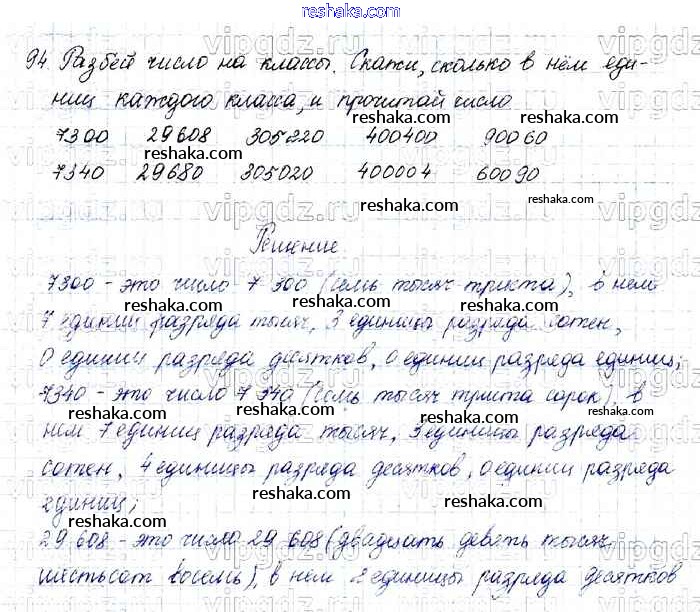 reshaka.com
94. Разбей число на классы. Скажи, сколько в нём еди-
ниц каждого класса, и прочитай число
7300 29608 305220 400400 90060
7340 29680 305020 400004 60090
Решение
7300 - это число 7 300 (семь тысяч триста), в нем
7 единиц разряда тысяч, 3 единицы разряда сотен,
0 единиц разряда десятков, 0 единиц разряда единиц;
7340 - это число 7 340 (семь тысяч триста сорок), в
нем 7 единиц разряда тысяч, 3 единицы разряда
сотен, 4 единицы разряда десятков, 0 единиц разряда
единиц;
29 608 - это число 29 608 (двадцать девять тысяч
шестьсот восемь), в нем 2 единицы разряда десятков